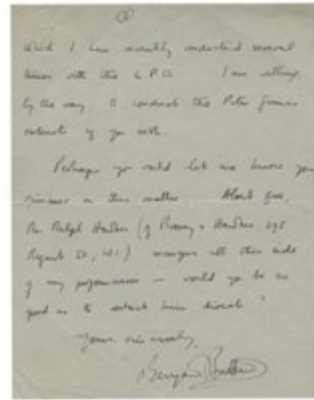 (2)
which I have recently conducted several
times with the L.P.O. I am willing,
by the way, to conduct the Peter Grimes
extracts if you wish.
Perhaps you could let me know your
in this matter. About fees,
Mr. Ralph Hawkes (of Boosey & Hawkes 295
Regent St, W.1.) manages all this side
of my performances — would you be so
good as to contact him direct?
Yours sincerely,
Benjamin Britten